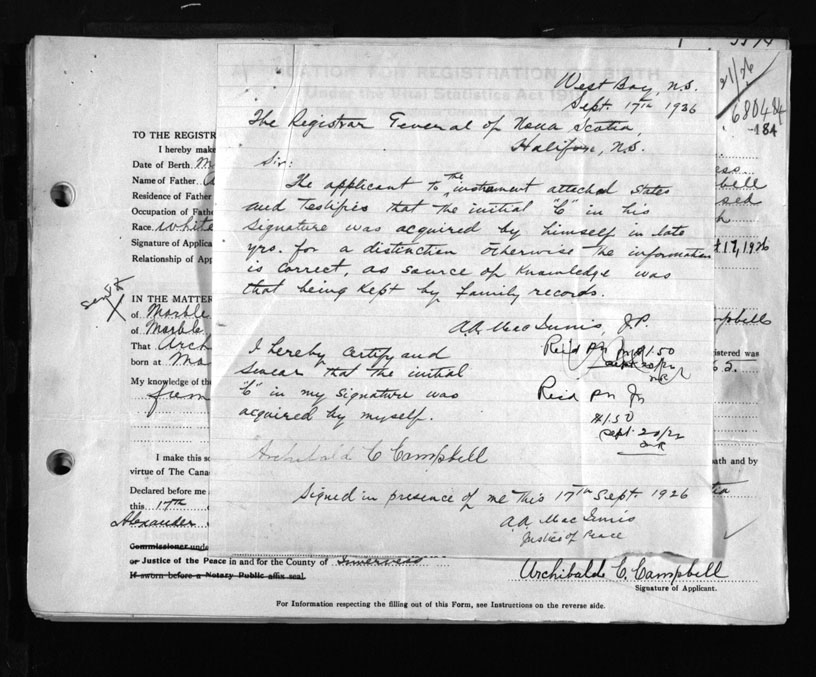 West Bay, N.S.
Sept 17th 1926
The Registrar General of Nova Scotia,
Halifax, N.S.
Sir:
The applicant to the instrument attached states
and testifies that the initial "C" in his
signature was acquired by himself in late
yrs. for a distinction otherwise the information
is correct, as source of knowledge was
that being kept by family records.
A.A. MacInnis, J.P.
I hereby certify and
swear that the initial
"C" in my signature was
acquired by myself.
$1.50
$1.50
Archibald C Campbell
Signed in presence of me this 17th Sept 1926
A.A. MacInnis
Justice of Peace
21/26
680484
-184
TO THE REGISTR
I hereby make
Date of Birth M
Name of Father A
Residence of Father
Occupation of Fath
Race. White
Signature of Applica
Relationship of App
17, 1926
IN THE MATTER
of Marble
of Marble
That Arch
born at Ma
istered was
My knowledge of the
I make this so
virtue of The Cana
ath and by
Declared before me
this 17th
Alexander
Commissioner unde
or Justice of the Peace in and for the County of Inverness
If sworn before a Notary Public affix seal.
Archibald C. Campbell
Signature of Applicant.
For Information respecting the filling out of this Form, see Instructions on the reverse side.